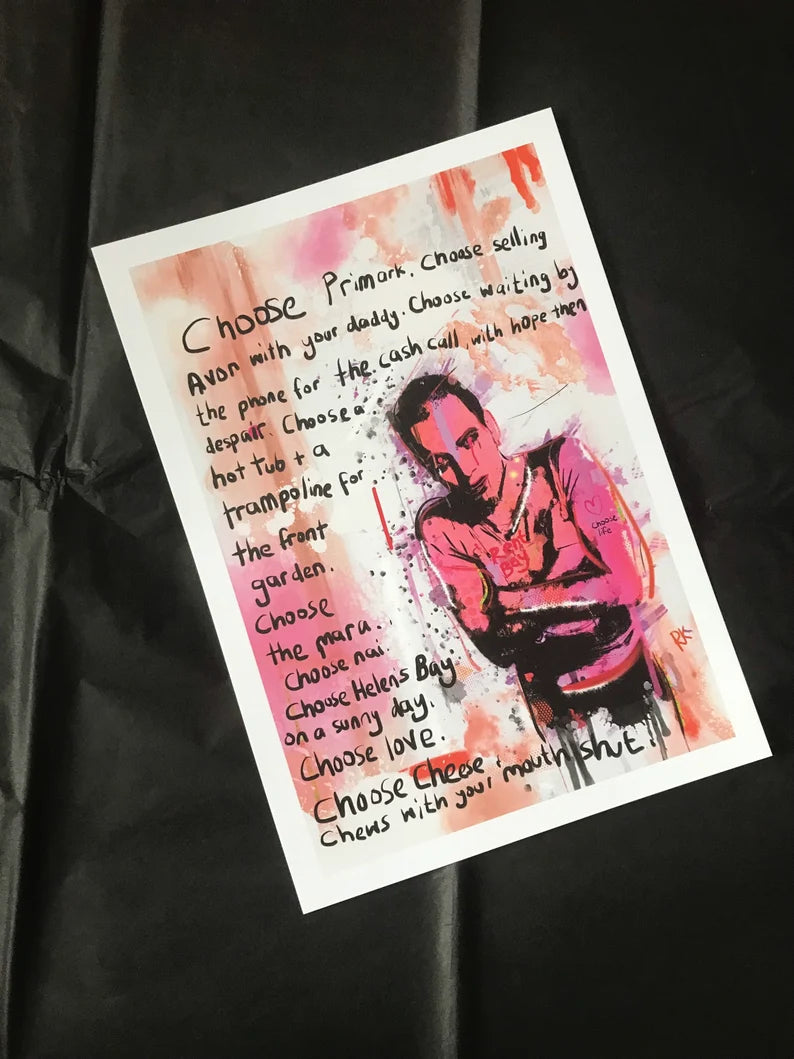 Choose Primark. Choose selling
Avon with your daddy. Choose waiting by
the phone for the cash call, with hope then
despair. Choose a
hot tub + a
trampoline for
the front
garden.
Choose
the mara.
Choose nai.
Choose Helen's Bay
on a sunny day.
Choose love.
Choose Cheese.
Chews with your mouth shut!
Rent
Boy
Choose
life
RK